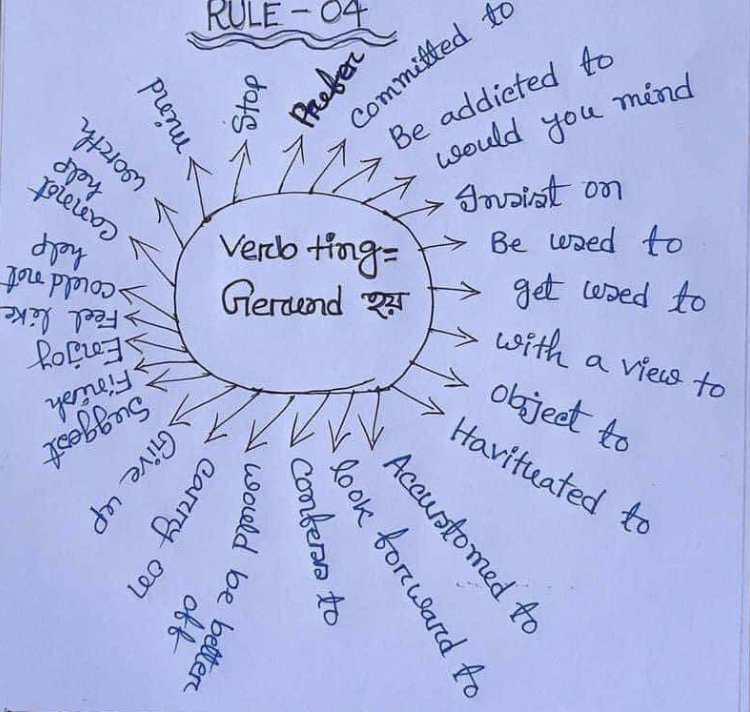 RULE - 04
Verb +ing =
Gerund হয়
mind
stop
Prefer
committed to
Be addicted to
would you mind
Insist on
Be used to
get used to
with a view to
object to
Havituated to
Accustomed to
look forward to
confess to
would be better
off
carry on
Give up
Suggest
Finish
Enjoy
Feel like
could not
help
cannot
help
worth